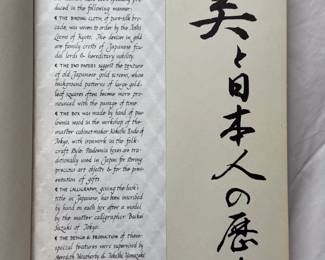 duced in the following manner:
¶ THE BINDING CLOTH, of pure-silk bro-
cade, was woven to order by the Tatsu-
The devices in gold
are family crests of Japanese feu-
dal lords & hereditary nobility.
¶ THE END PAPERS suggest the texture
of old Japanese gold screens, whose
background patterns of large gold-
leaf squares often become more pro-
nounced with the passage of time.
¶ THE BOX was made by hand of pau-
lownia wood in the workshop of the
master cabinetmaker Kokichi Endo of
Tokyo, with ironwork in the folk-
craft style. Paulownia boxes are tra-
ditionally used in Japan for storing
precious art objects & for the pre-
sentation of gifts.
¶ THE CALLIGRAPHY, giving the book's
title in Japanese, has been inscribed
by hand on each box after a model
by the master calligrapher Bachei
Suzuki of Tokyo.
¶ THE DESIGN & PRODUCTION of these
special features were supervised by
Meredith Weatherby & Takeshi Yamazaki
と日本人の歴